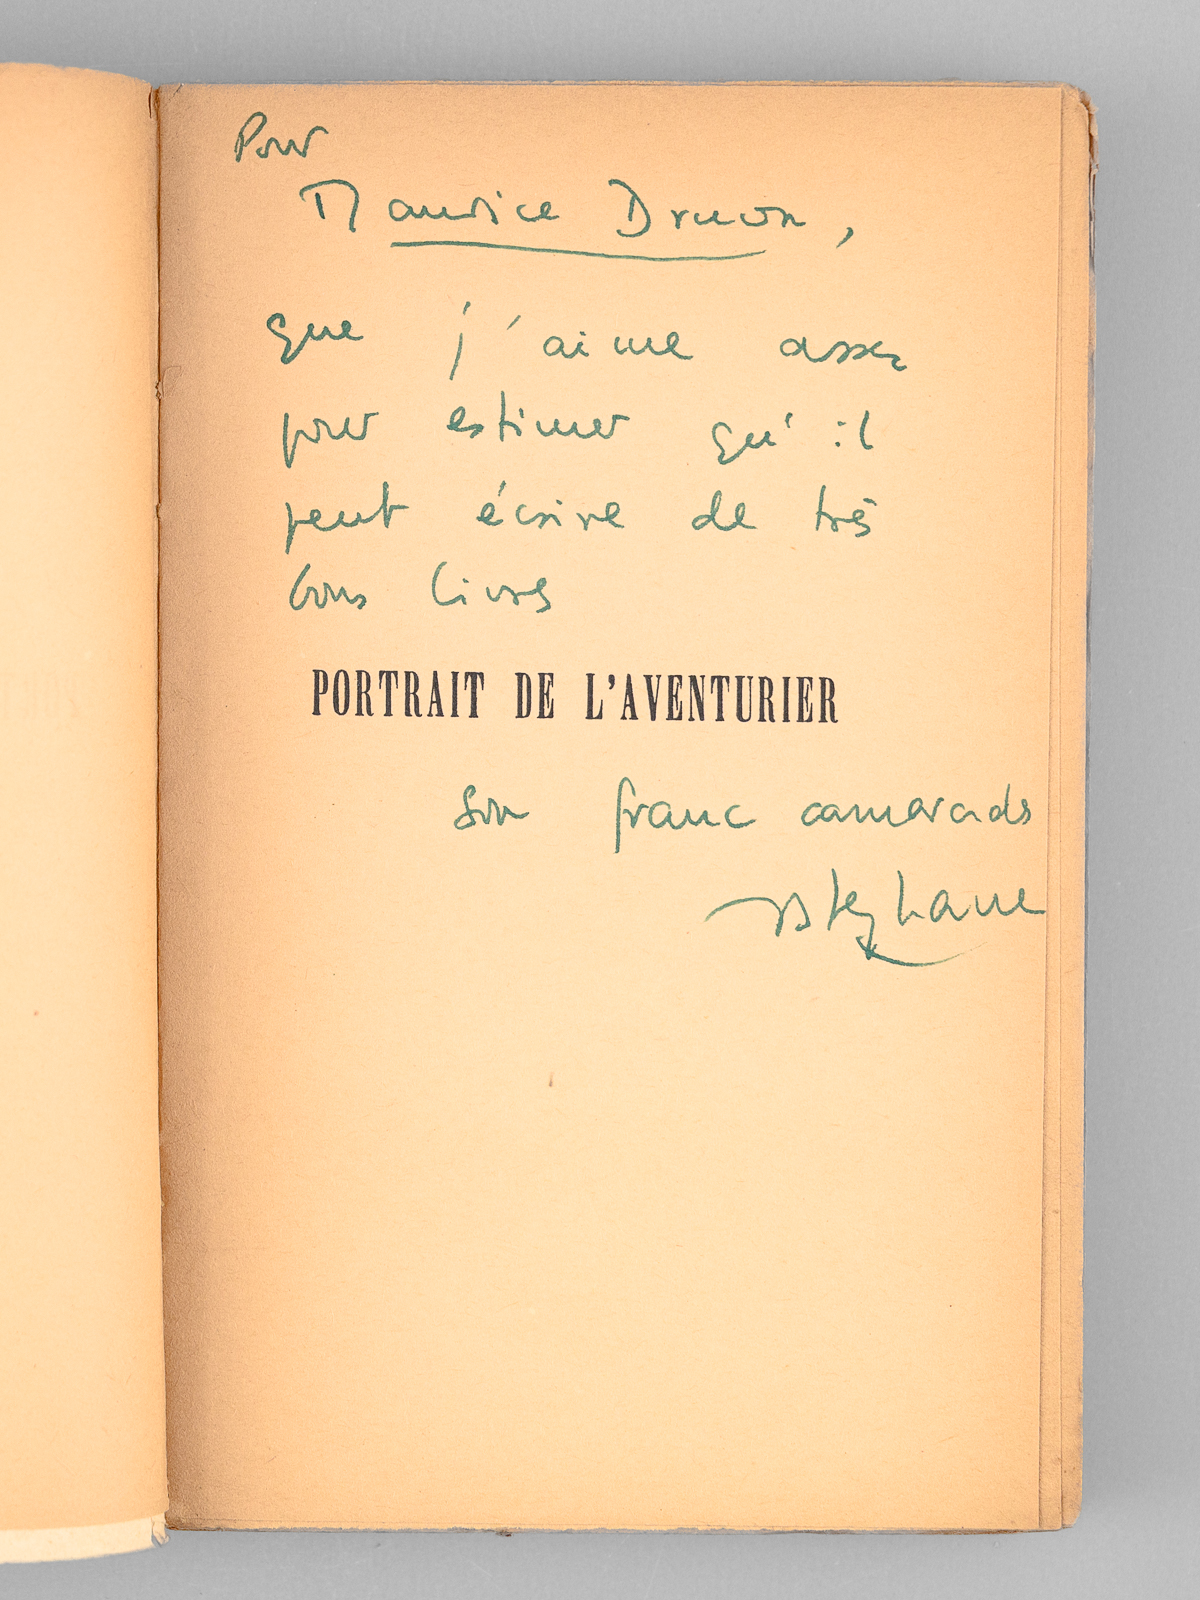 Pour
Maurice Druon,
que j'aime assez
pour estimer qu'il
peut écrire de très
bons livres
PORTRAIT DE L'AVENTURIER
Son franc camarade
Stéphane